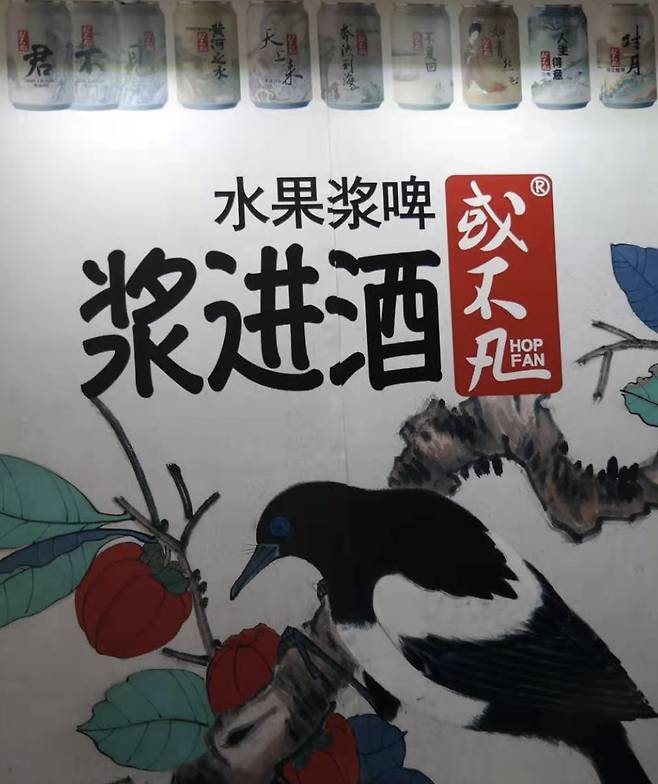 君 不 見 黄河之水 天上来 奔流到海 不复回 人生得意 对月
水果浆啤
浆进酒
或不凡®
HOP
FAN